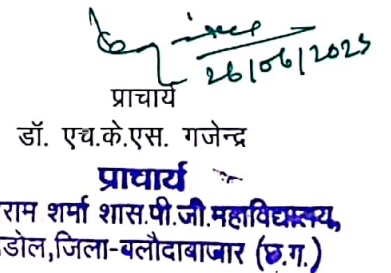 26/06/2025
प्राचार्य
डॉ. एच.के.एस. गजेन्द्र
प्राचार्य
राम शर्मा शास.पी.जी.महाविद्यालय,
डोल,जिला-बलौदाबाजार (छ.ग.)